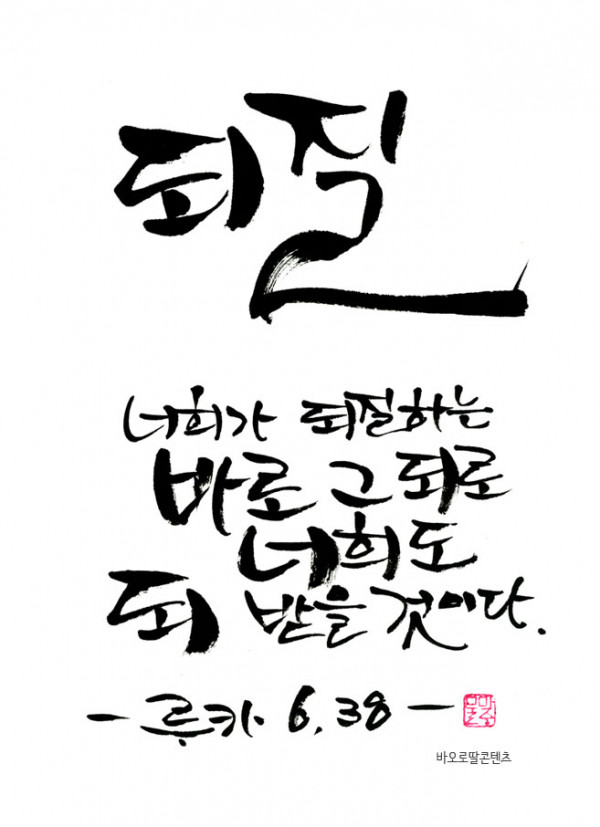 되질
너희가 되질하는
바로 그 되로
너희도
되 받을 것이다.
- 루카 6, 38 -
바오로딸콘텐츠